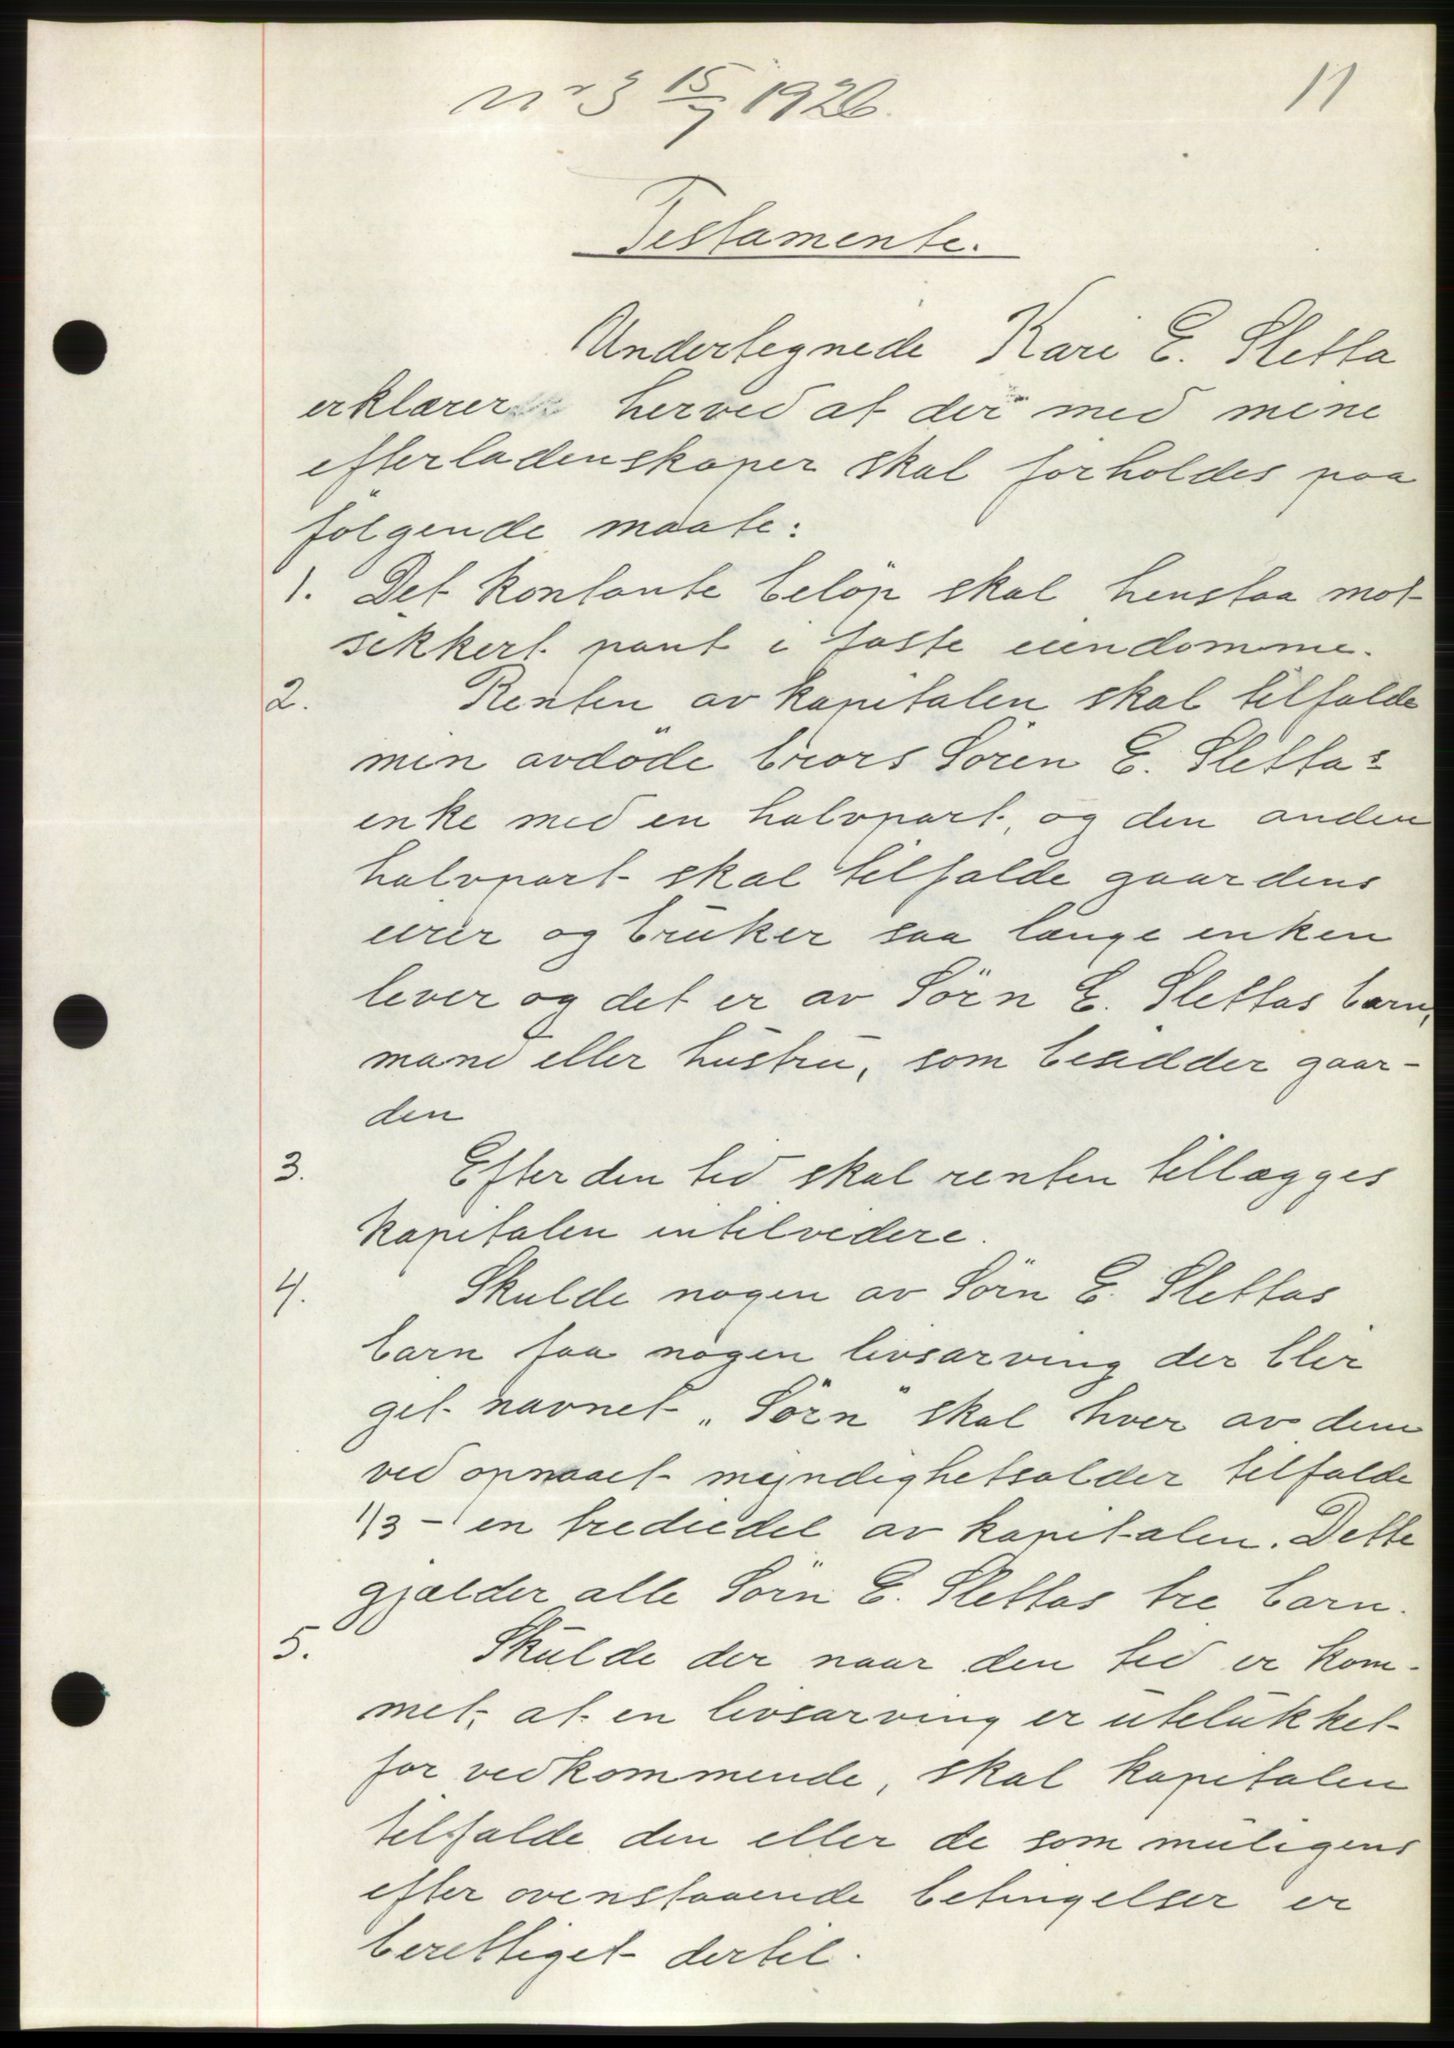 nr 3 15/7 1926.
11
Testamente.
Undertegnede Kari E. Sletta
erklærer herved at der med mine
efterladenskaper skal forholdes paa
følgende maate:
1. Det kontante beløp skal henstaa mot
sikkert pant i faste eiendomme.
2. Renten av kapitalen skal tilfalde
min avdöde brors Sören E. Sletta's
enke med en halvpart, og den anden
halvpart skal tilfalde gaardens
eier og bruker saa længe enken
lever og det er av Sörn E. Slettas barn,
mand eller hustru, som besidder gaar-
den
3. Efter den tid skal renten tillægges
kapitalen intilvidere.
4. Skulde nogen av Sörn E. Slettas
barn faa nogen livsarving der blir
git navnet „Sörn" skal hver av dem
ved opnaaet myndighetsalder tilfalde
1/3 - en trediedel av kapitalen. Dette
gjælder alle Sörn E. Slettas tre barn.
5. Skulde der naar den tid er kom-
met, at en livsarving er utelukket
for vedkommende, skal kapitalen
tilfalde den eller de som muligens
efter ovenstaaende betingelser er
berettiget dertil.